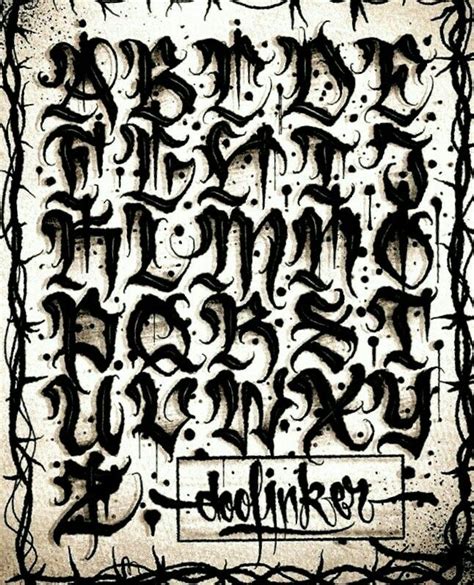 A B C D E
F G H I J
K L M N O
P Q R S T
U V W X Y
Z. doolinker